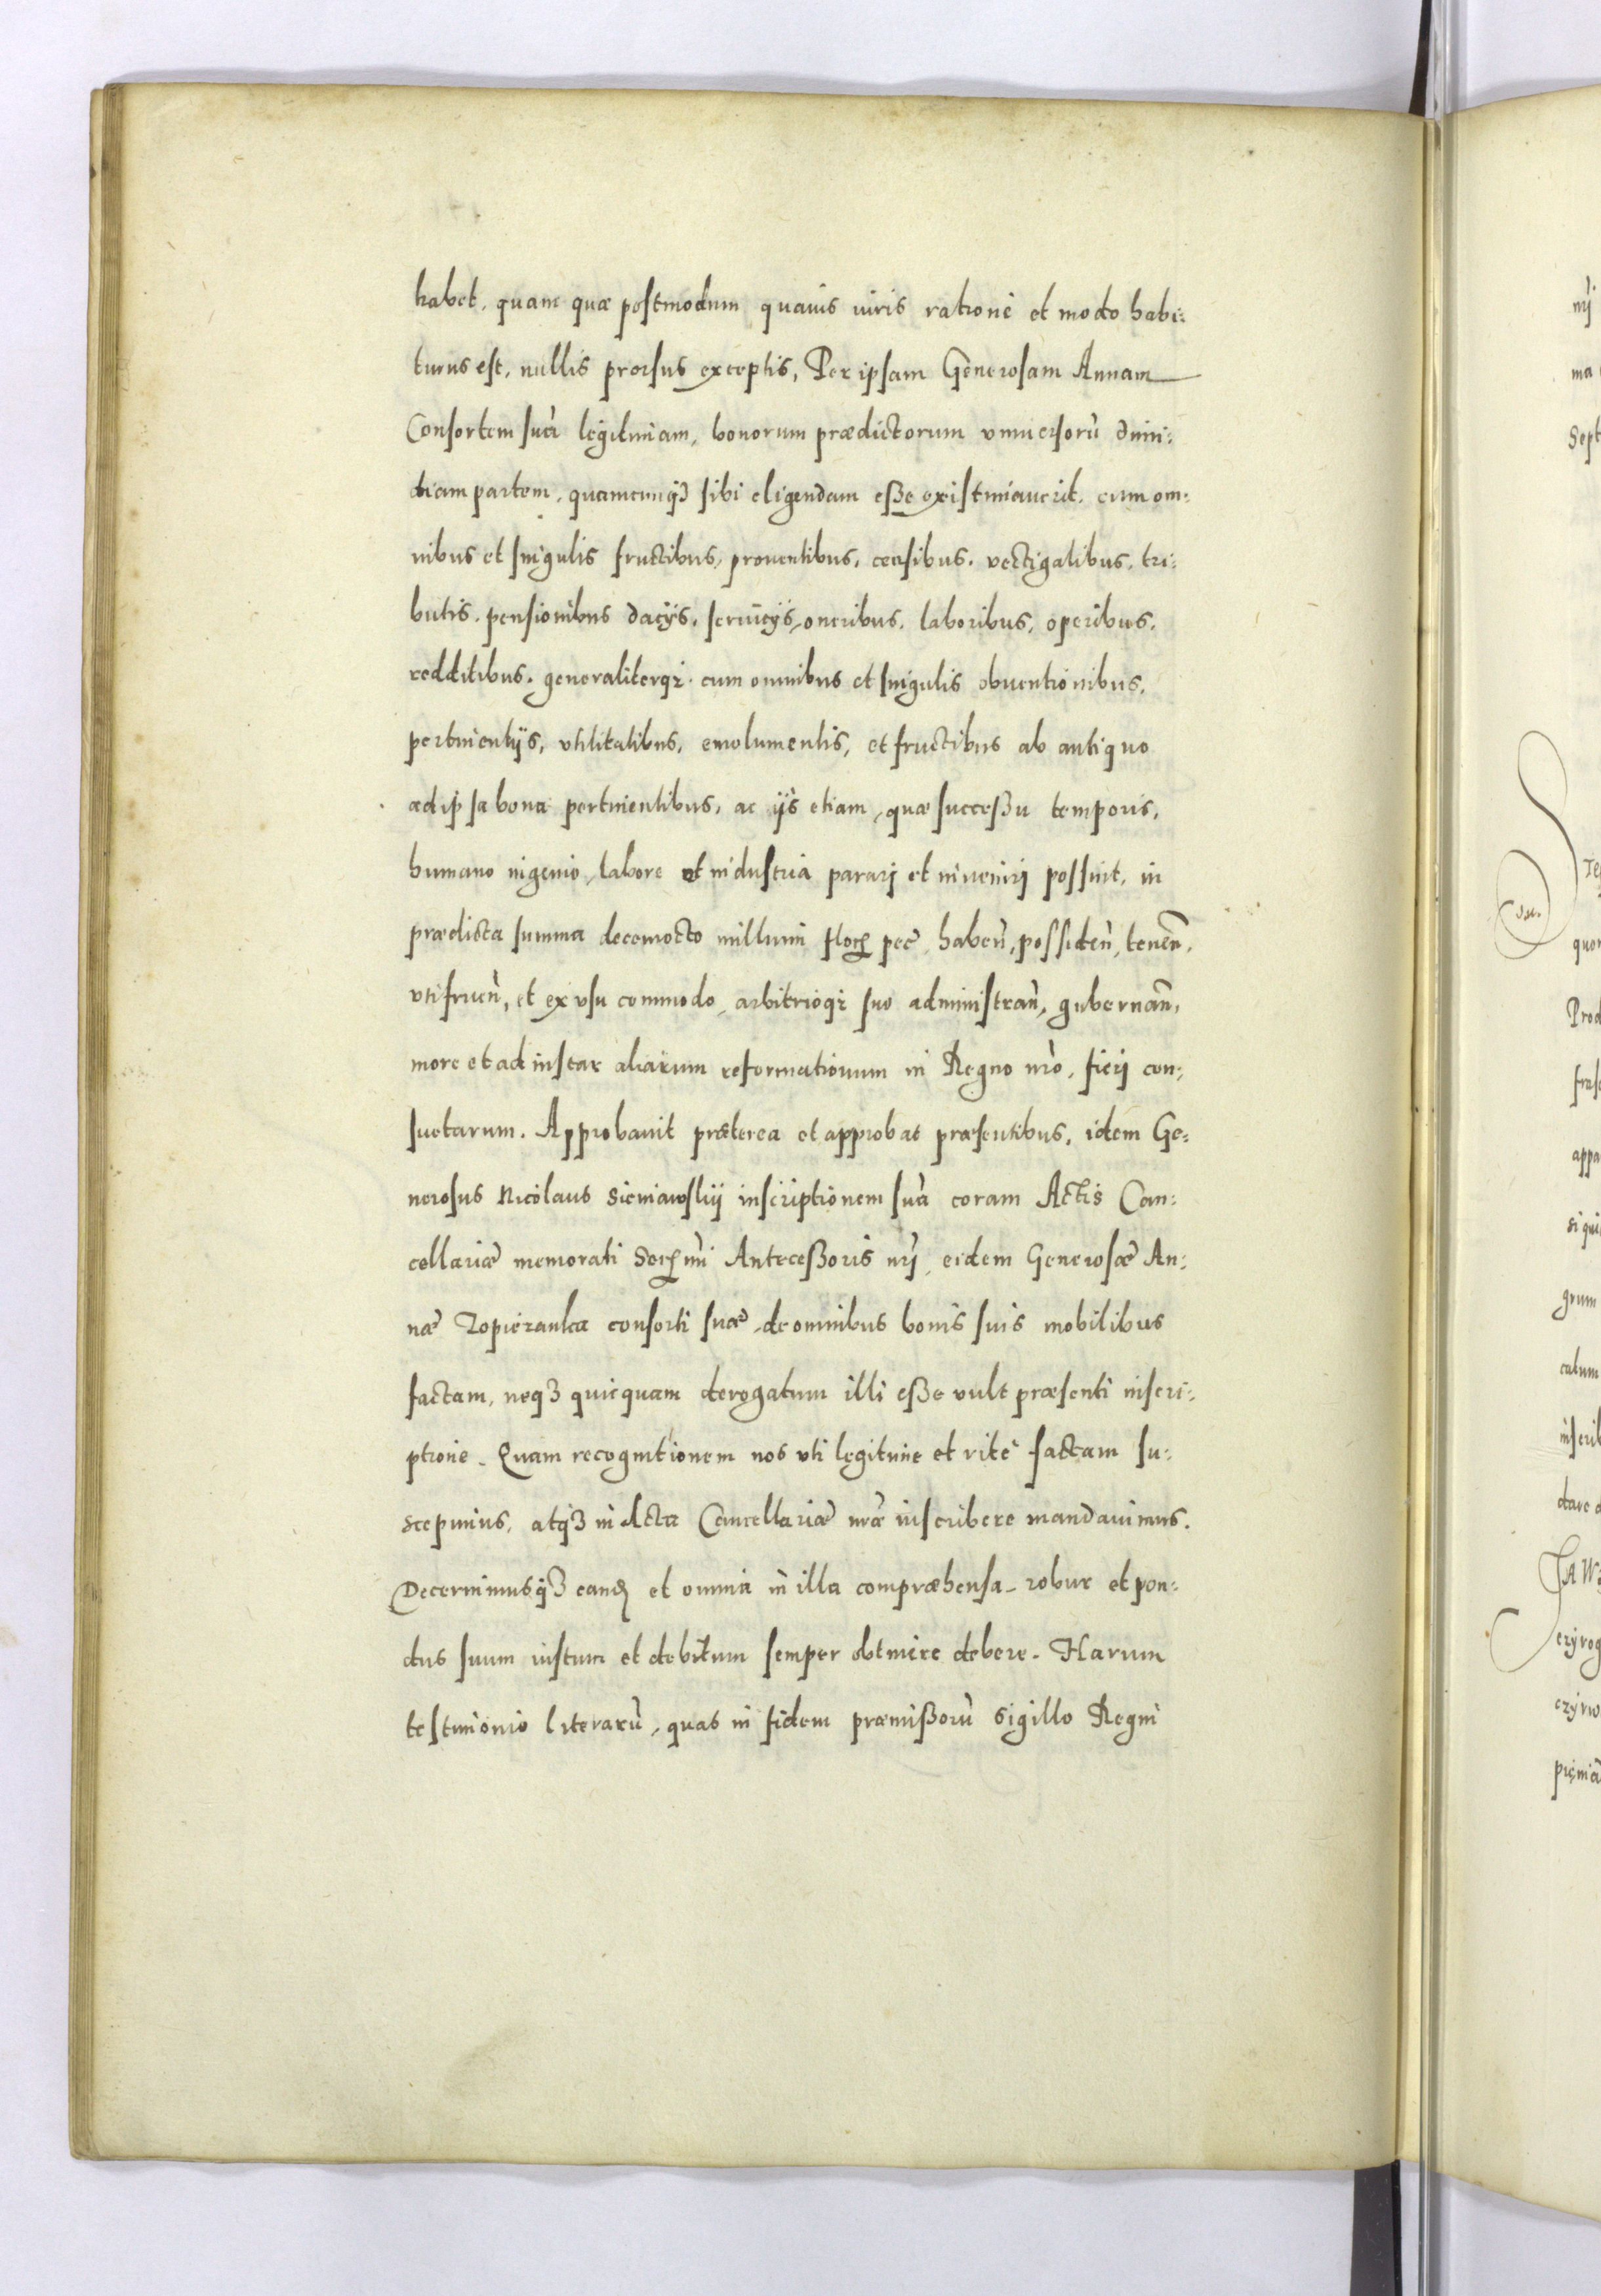 habet, quam quæ postmodum quauis iuris ratione et modo habi:
turus est, nullis prorsus exceptis, Per ipsam Generosam Annam
Consortem suā legitimam, bonorum prædictorum vniuersorū dimi:
diam partem, quamcunqȝ sibi eligendam eße existimauerit, cum om:
nibus et singulis fructibus, prouentibus, censibus, vectigalibus, tri:
butis, pensionibus dacijs, seruicijs, oneribus, laboribus, operibus,
redditibus, generaliterqȝ cum omnibus et singulis obuentionibus,
pertinentijs, vtilitatibus, emolumentis, et fructibus ab antiquo
ad ipsa bona pertinentibus, ac ijs etiam, quæ succeßu temporis,
humano ingenio, labore et industria parari et inueniri possint, in
prædicta summa decemocto millium floꝝ pec̄ habeñ, possideñ, teneñ,
vtifrueñ, et ex vsu commodo, arbitrioqȝ suo administrañ, gubernañ,
more et ad instar aliarum reformationum in Regno nr̄o, fieri con:
suetarum. Approbauit præterea et approbat præsentibus, idem Ge:
nerosus Nicolaus Sieniawskij inscriptionem suā coram Actis Can:
cellariæ memorati Serꝫmi Anteceßoris nr̄j, eidem Generosæ An:
næ Topieranka consorti suæ, de omnibus bonis suis mobilibus
factam, neqȝ quicquam derogatum illi eße vult præsenti inscri:
ptione. Quam recognitionem nos vti legitime et rite factam su:
scepimus, atqȝ in Acta Cancellariæ nr̄æ inscribere mandauimus.
Decernimusqȝ eandꝫ et omnia in illa compræhensa, robur et pon:
dus suum iustum et debitum semper obtinere debere. Harum
testimonio literarū, quas in fidem præmißorū sigillo Regni